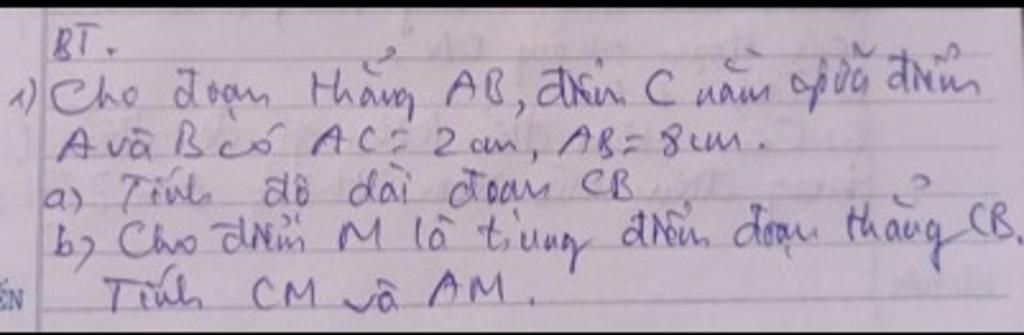 BT.
1) Cho đoạn thẳng AB, điểm C nằm giữa điểm
A và B có AC = 2 cm, AB = 8 cm.
a) Tính độ dài đoạn CB
b) Cho điểm M là trung điểm đoạn thẳng CB.
Tính CM và AM.
ẾN